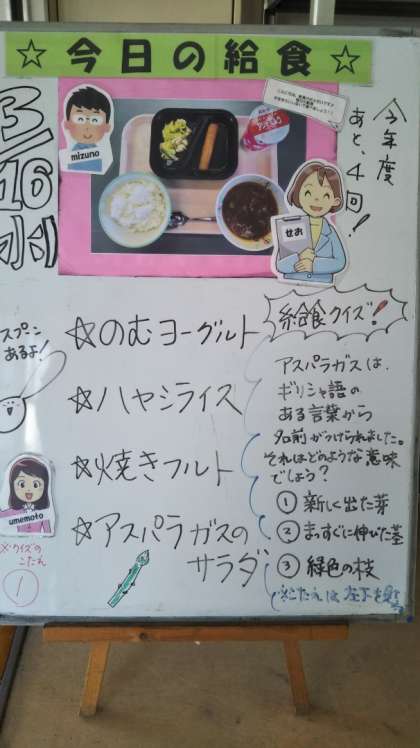 ☆今日の給食☆
3/16
水
mizuno
今年度
あと、4回!
せお
スプーン
あるよ!
☆のむヨーグルト
☆ハヤシライス
☆焼きフルト
☆アスパラガスの
サラダ
umemoto
※クイズの
こたえ
①
給食クイズ!
アスパラガスは、
ギリシャ語の
ある言葉から
名前がつけられました。
それはどのような意味
でしょう?
①新しく出た芽
②まっすぐに伸びた茎
③緑色の枝
※こたえは左下を見